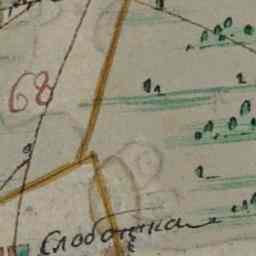 68
Слоботка